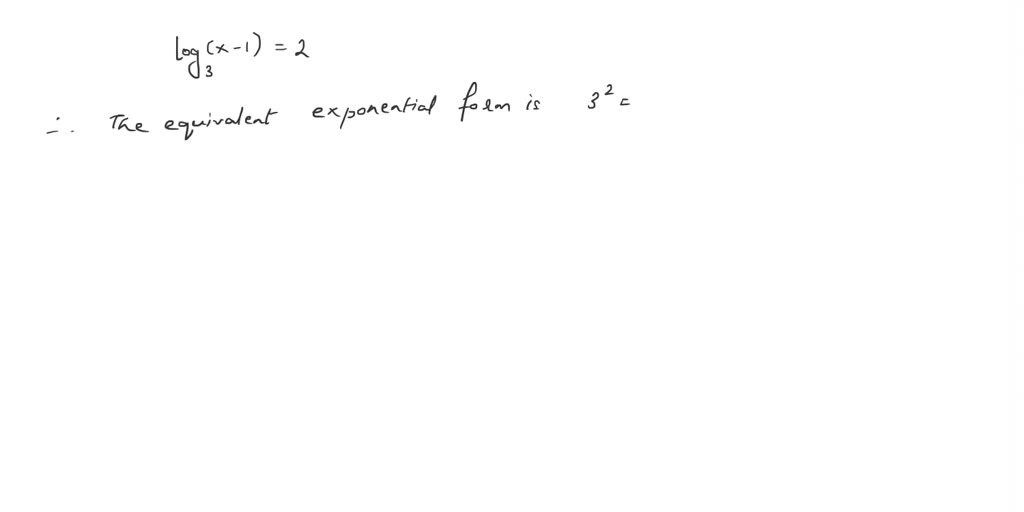 log₃(x-1) = 2
∴ The equivalent exponential form is 3² =